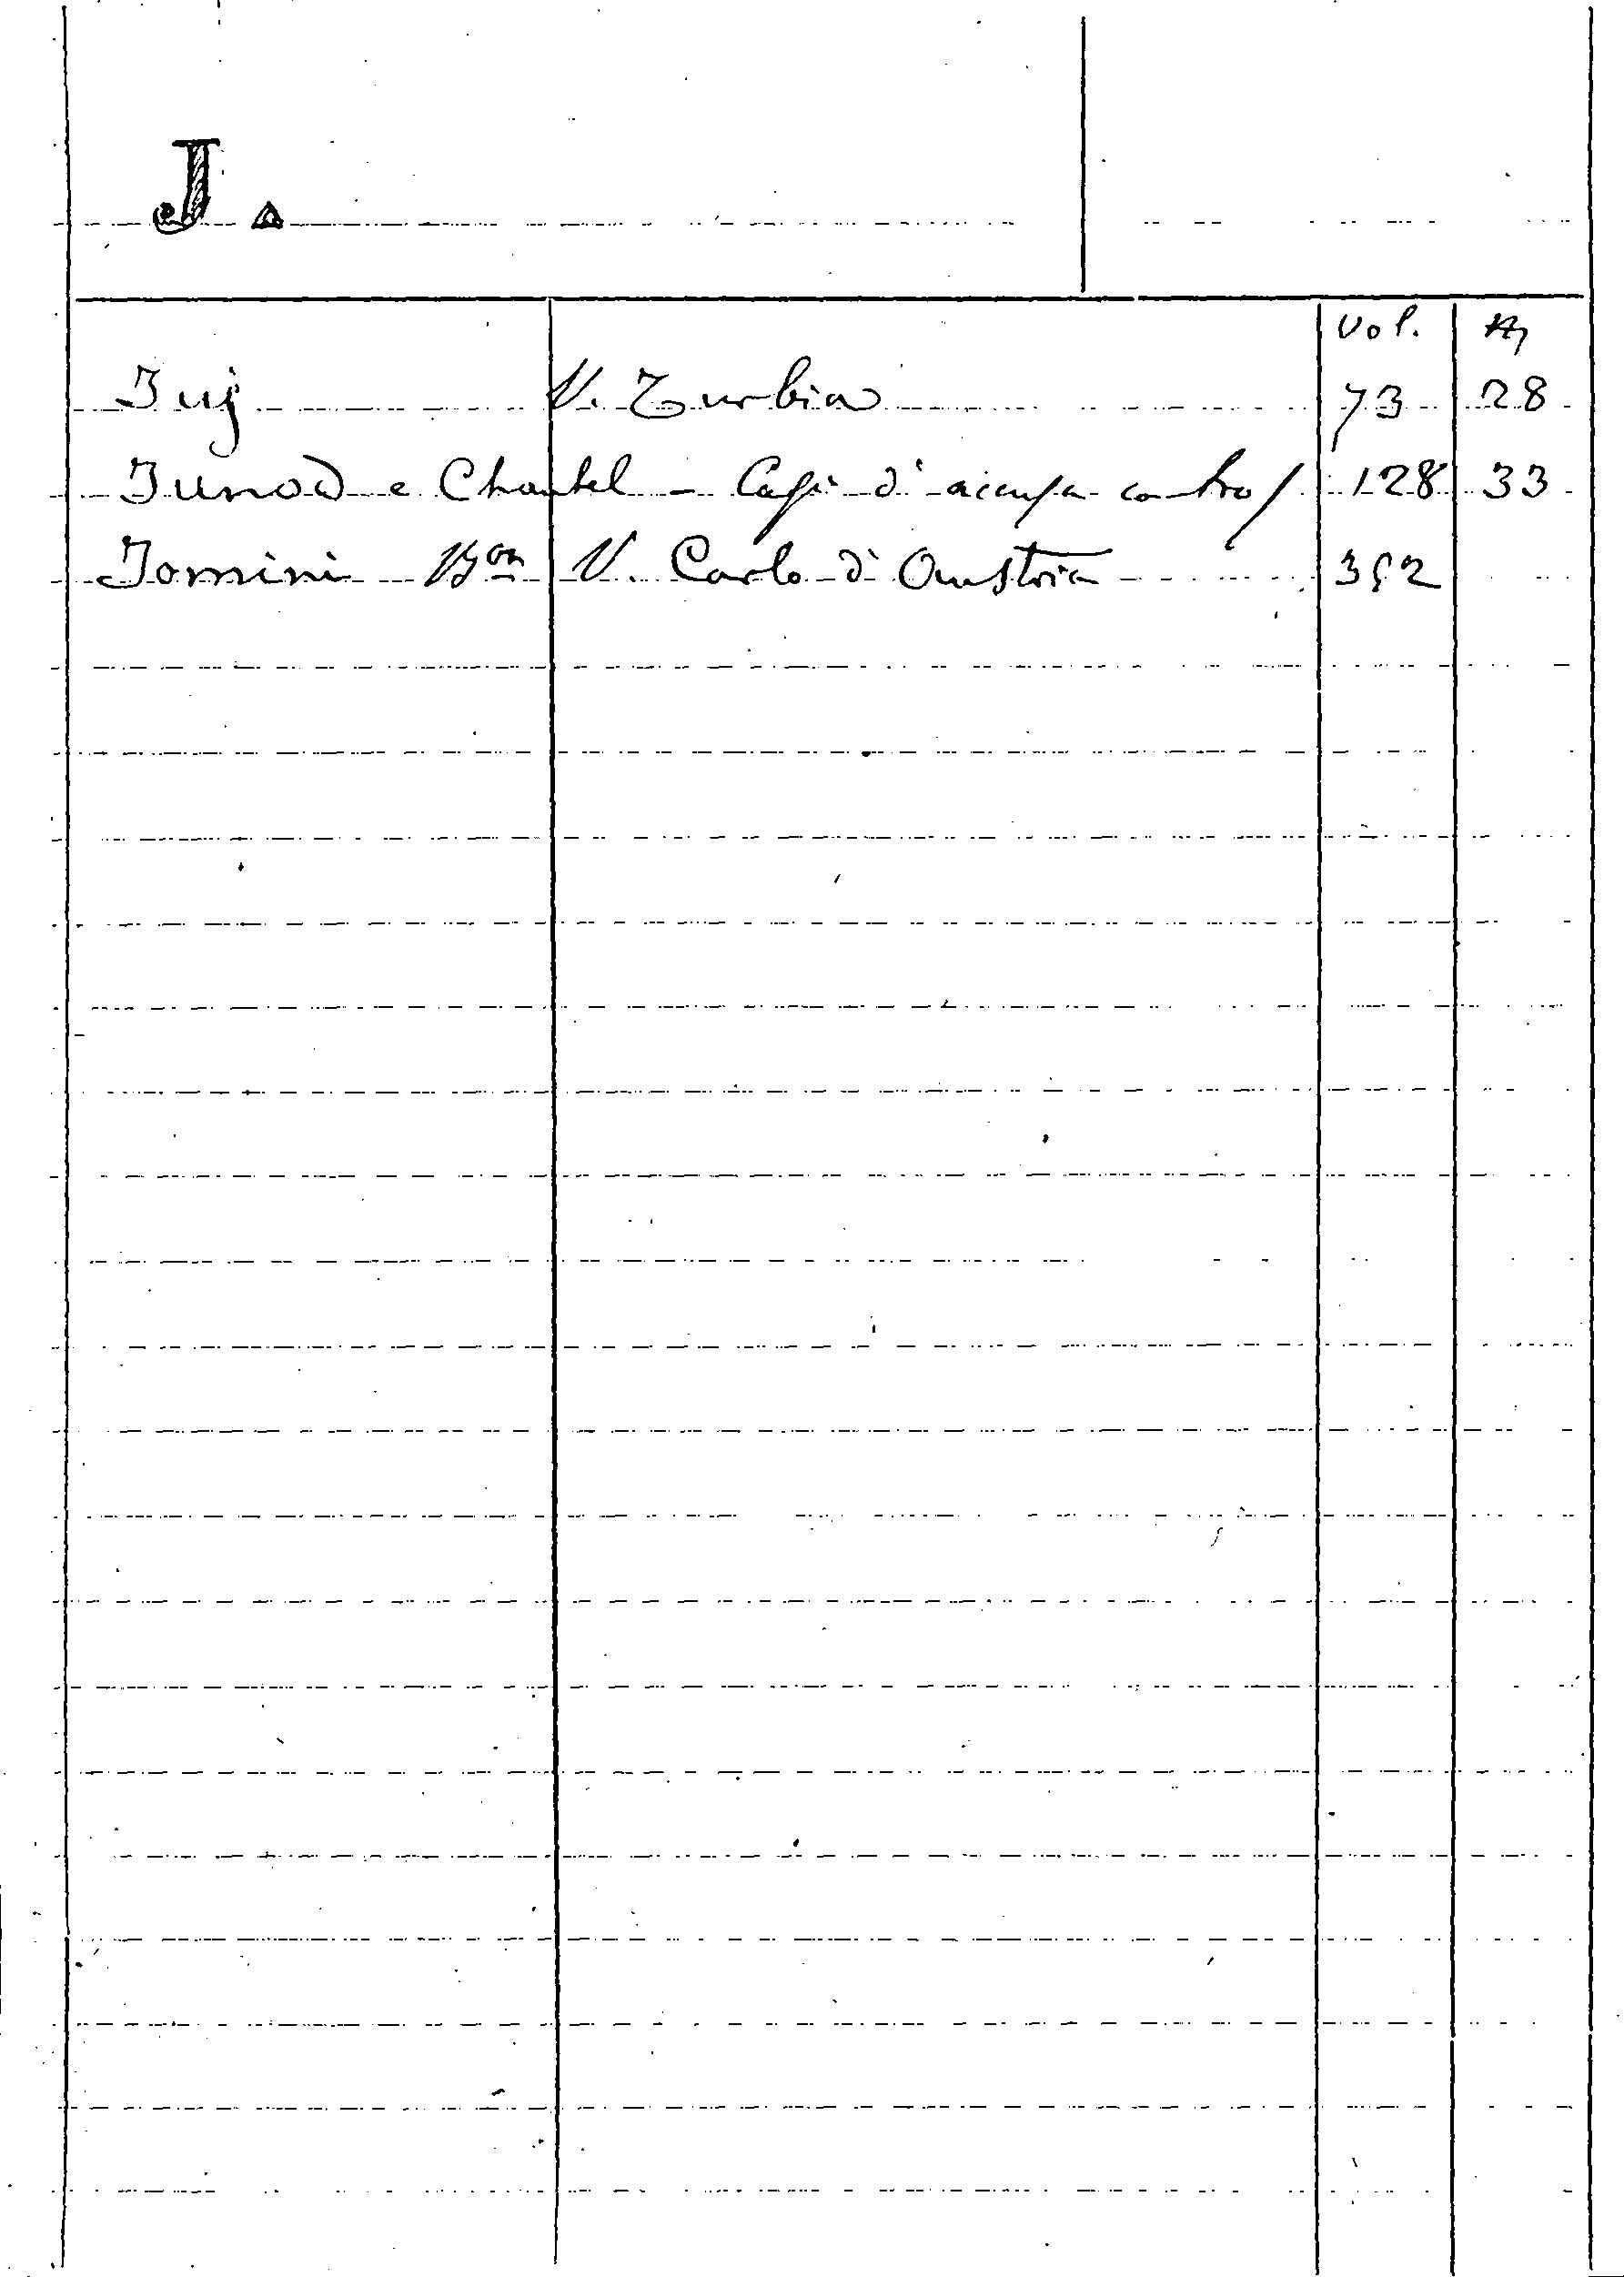 J.
Vol. N
Juj V. Turbia 73 28
Junod e Chantel - Capi d'accusa contro / 128 33
Jomini Bon V. Carlo d'Austria 352